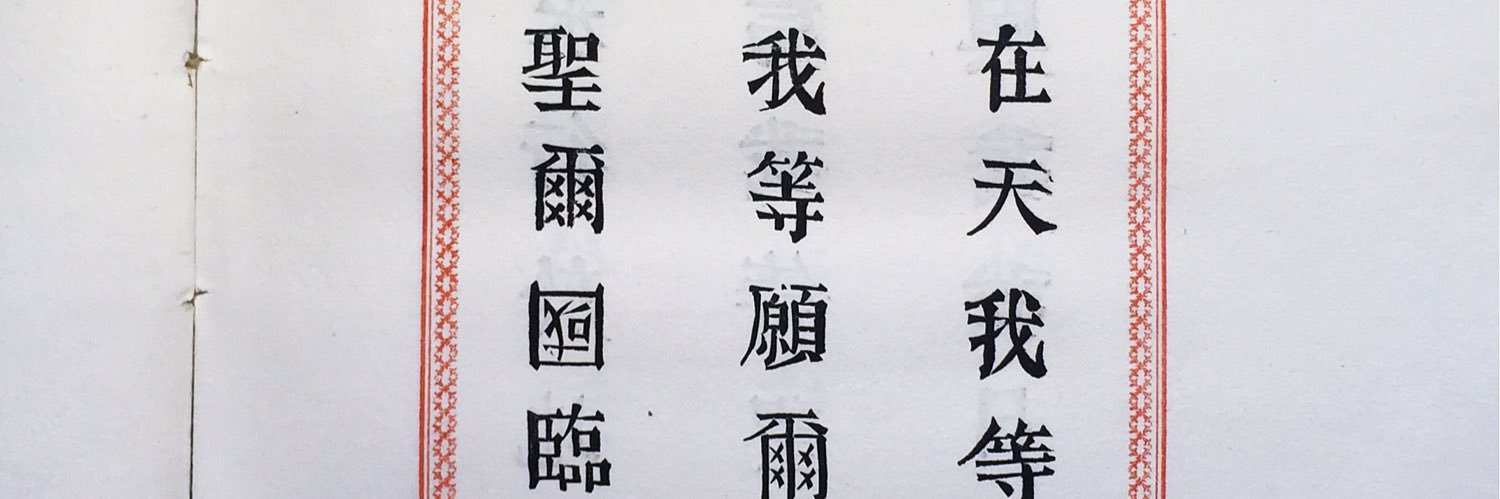 在天我等
我等願爾
聖爾國臨